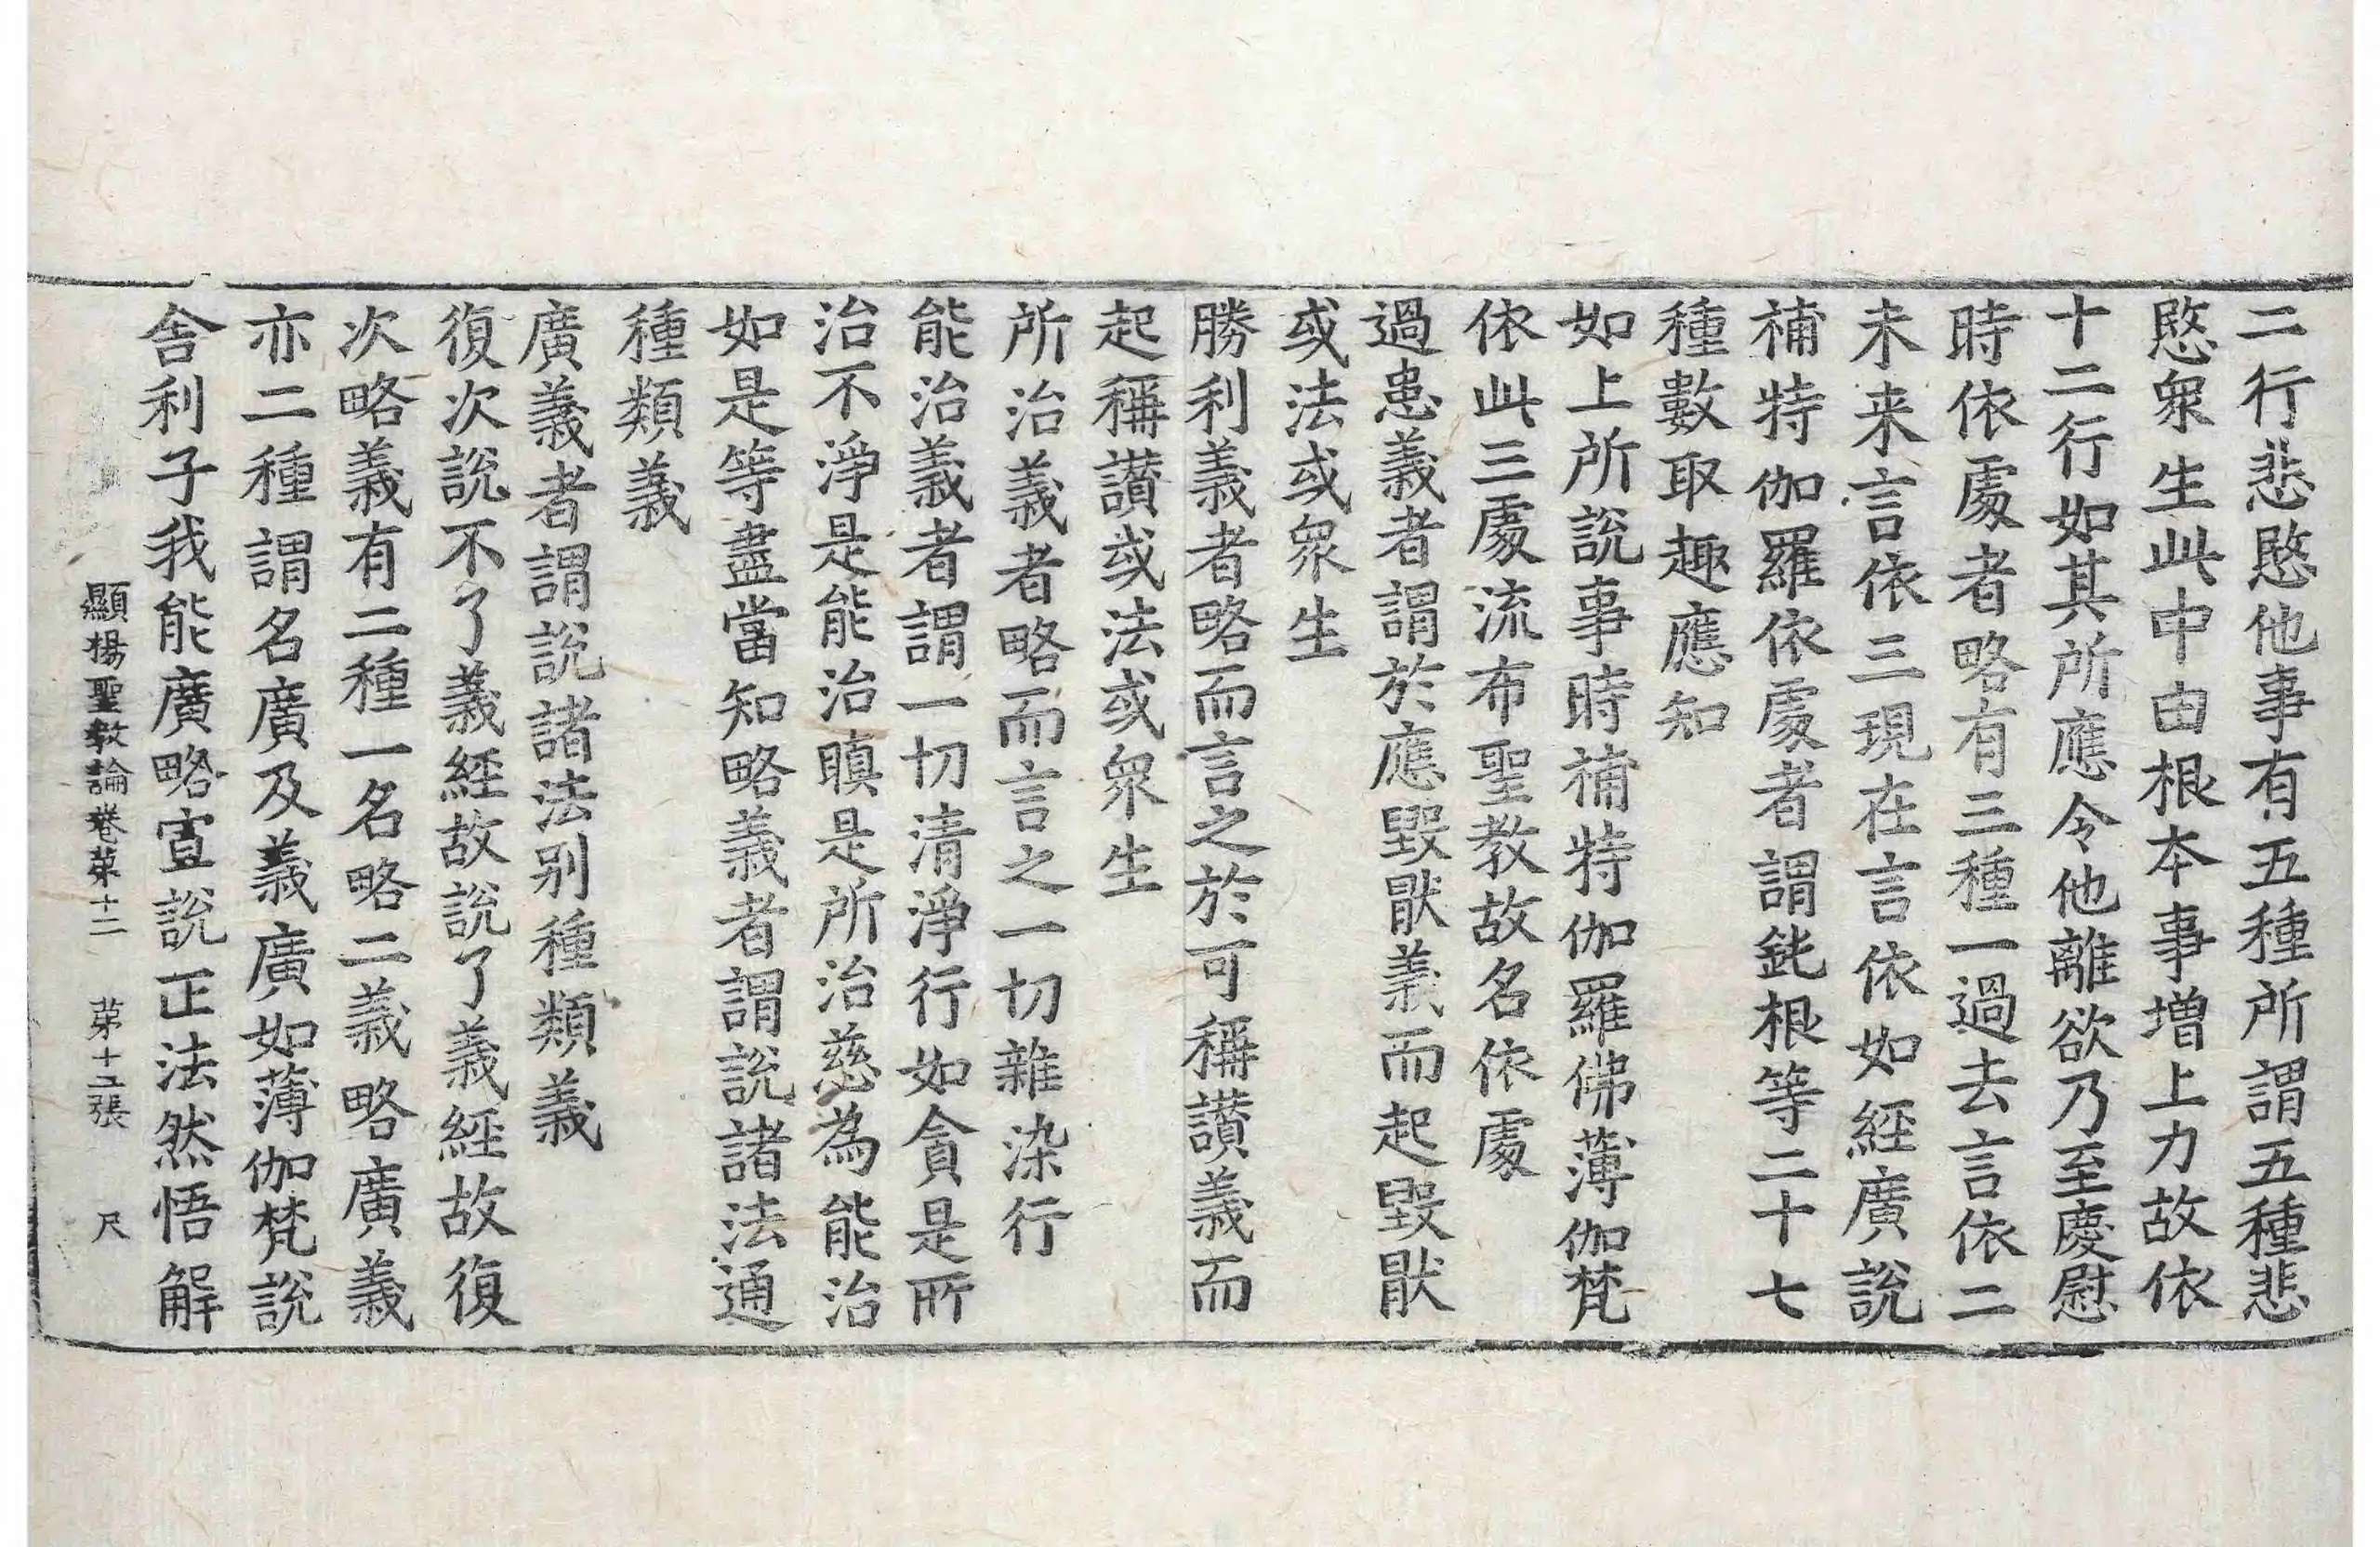 二行悲愍他事有五種所謂五種悲
愍衆生此中由根本事增上力故依
十二行如其所應令他離欲乃至慶慰
時依處者略有三種一過去言依二
未来言依三現在言依如經廣說
補特伽羅依處者謂鈍根等二十七
種數取趣應知
如上所說事時補特伽羅佛薄伽梵
依此三處流布聖教故名依處
過患義者謂於應毀猒義而起毀猒
或法或衆生
勝利義者略而言之於可稱讃義而
起稱讃或法或衆生
所治義者略而言之一切雜染行
能治義者謂一切清淨行如貪是所
治不淨是能治瞋是所治慈為能治
如是等盡當知略義者謂說諸法通
種類義
廣義者謂說諸法别種類義
復次說不了義經故說了義經故復
次略義有二種一名略二義略廣義
亦二種謂名廣及義廣如薄伽梵說
舎利子我能廣略宣說正法然悟解
顯揚聖教論卷苐十二 苐十二張 尺